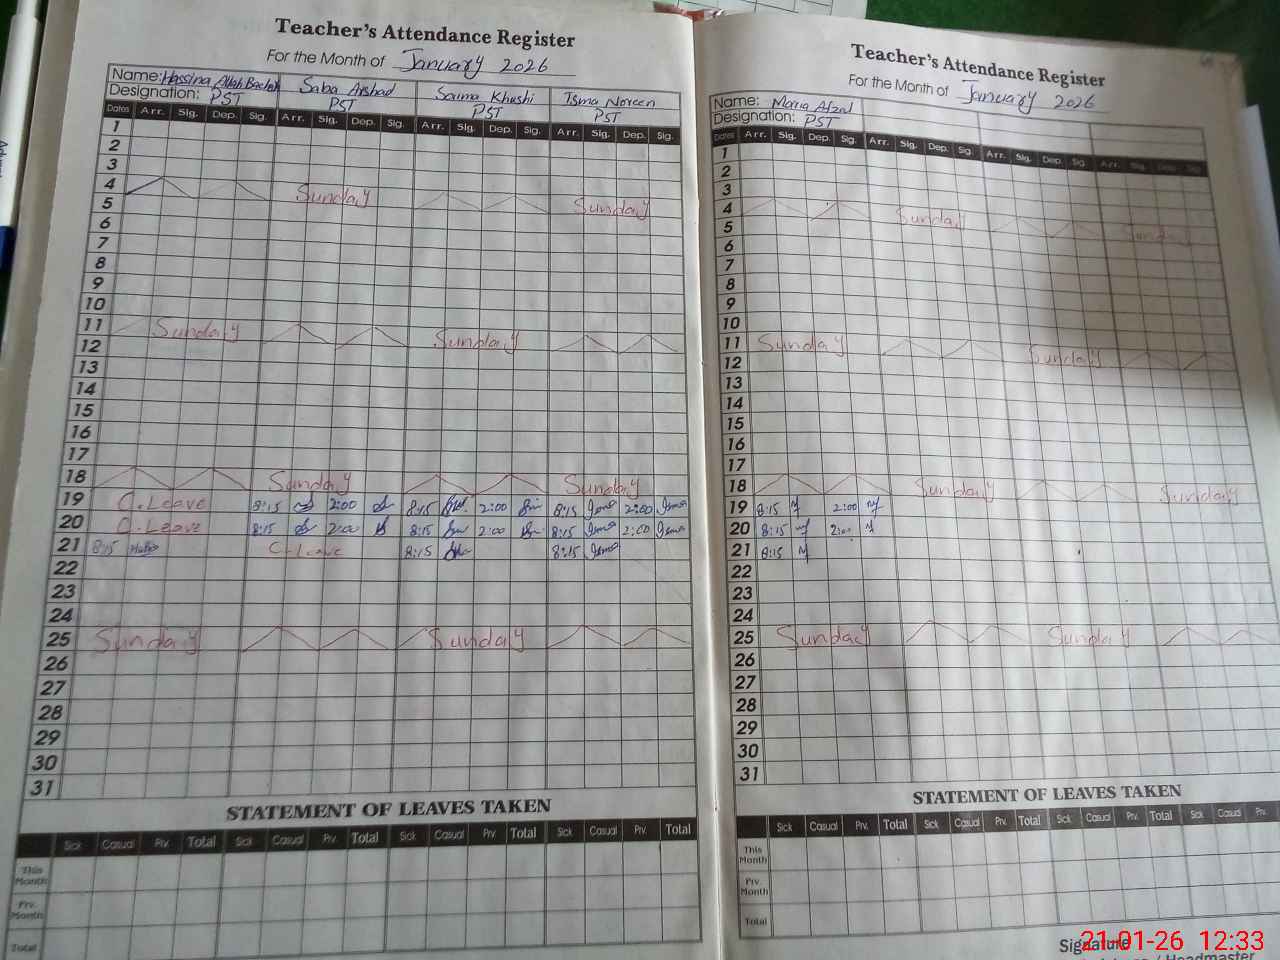 Teacher's Attendance Register
For the Month of January 2026
Name: Hassina Allah Bachai Saba Arshad Saima Khushi Isma Noreen
Designation: PST PST PST PST
Dates Arr. Sig. Dep. Sig. Arr. Sig. Dep. Sig. Arr. Sig. Dep. Sig. Arr. Sig. Dep. Sig.
1
2
3
4 Sunday Sunday
5
6
7
8
9
10
11 Sunday Sunday
12
13
14
15
16
17
18 Sunday Sunday
19 C.Leave 8:15 2:00 8:15 2:00 8:15 Isma 2:00 Isma
20 C.Leave 8:15 2:00 8:15 2:00 8:15 Isma 2:00 Isma
21 8:15 C.Leave 8:15 8:15 Isma
22
23
24
25 Sunday Sunday
26
27
28
29
30
31
STATEMENT OF LEAVES TAKEN
Sick Casual Prv. Total Sick Casual Prv. Total Sick Casual Prv. Total Sick Casual Prv. Total
This Month
Prv. Month
Total
Teacher's Attendance Register
For the Month of January 2026
Name: Maria Afzal
Designation: PST
Dates Arr. Sig. Dep. Sig. Arr. Sig. Dep. Sig. Arr. Sig. Dep. Sig. Arr. Sig. Dep. Sig.
1
2
3
4 Sunday Sunday
5
6
7
8
9
10
11 Sunday Sunday
12
13
14
15
16
17
18 Sunday Sunday
19 8:15 2:00
20 8:15 2:00
21 8:15
22
23
24
25 Sunday Sunday
26
27
28
29
30
31
STATEMENT OF LEAVES TAKEN
Sick Casual Prv. Total Sick Casual Prv. Total Sick Casual Prv. Total Sick Casual Prv.
This Month
Prv. Month
Total
Signature
/ Headmaster
21-01-26 12:33